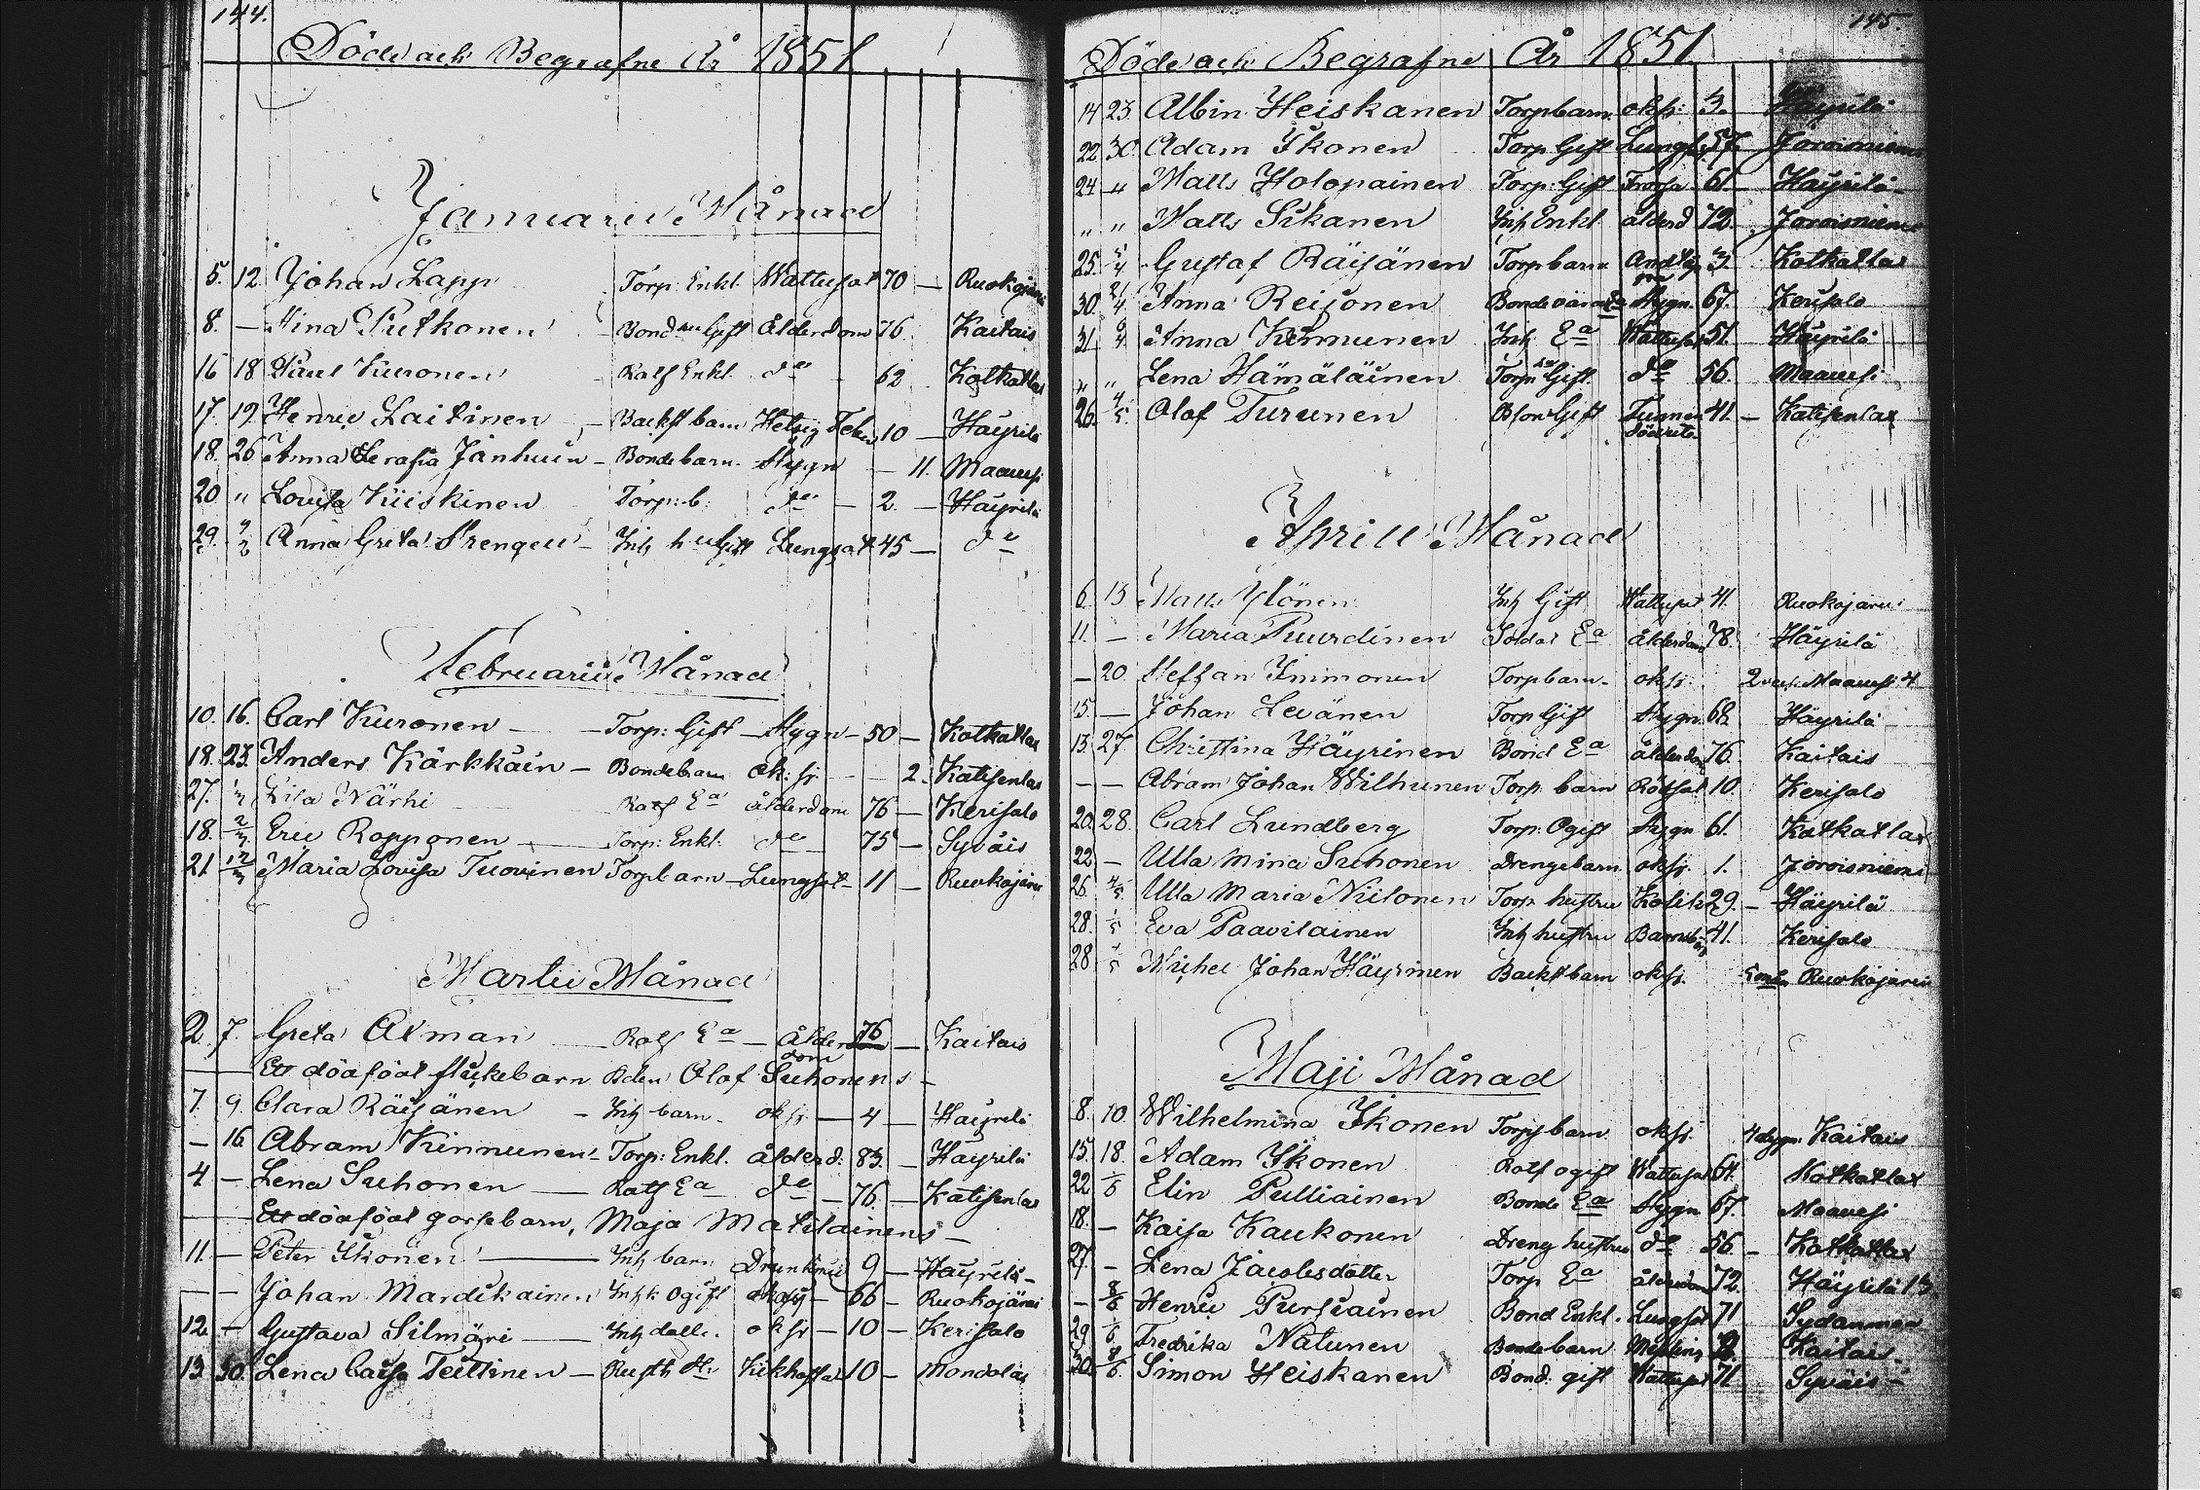 144.
Döde och Begrafne År 1851
Januarii Månad
5. 12 Johan Lapp Torp: Enkl. Wattusot 70 — Ruokojärvi
8. — Stina Putkonen Bond hu Gift Ålderdom 76. Kaitais
16 18 Påul Kuronen Rotf Enkl. do - 62 Kotkatlax
17. 19. Henric Laitinen Backst barn Hetsig Feber 10 — Häyrilä
18. 26 Anna Serafia Jänhuin — Bondebarn Stygn — 11. Maavesi
20 " Lovisa Kiiskinen Torp: b. do — 2. — Häyrilä
29. 2/2 Anna Greta Strengell — Inh hu Gift Lungsot 45 — do
Februarii Månad
10. 16. Carl Kuronen — Torp: Gift — Stygn — 50 — Kotkatlax
18. 23. Anders Kärkkäin — Bondebarn ok: sj — 2. Katisenlax
27. Lisa Närhi Rotf Ea ålderdom 76 — Kerisalo
18. 2/3 Eric Ropponen — Torp: Enkl. do — 75 — Syväis
21. 12/3 Maria Lovisa Tuovinen Torpbarn — Lungsot — 11 — Ruokojärvi
Martii Månad
2. 7. Greta Axman — Rotf Ea — Ålderdom 76 — Kaitais
— Ett dödfödt flickebarn Bden Olof Suhonens —
7. 9. Clara Räisänen — Inh barn. ok sj — 4 — Häyrilä
— 16 Abram Kinnunen — Torp: Enkl. ålderd: 83. — Häyrilä
4 — Lena Suhonen — Rotf Ea do — 76. — Katisenlax
— Ett dödfödt gossebarn, Maja Matilainens —
11 — Peter Ikonen — Inh barn Drunknad 9 — Häyrilä —
— — Johan Mardikainen Inh k Ogift oksj — 66 — Ruokojärvi
12. — Gustava Silmäri — Inh dotter. ok sj — 10 — Kerisalo
13 30. Lena Caisa Teittinen — Rusth dr Kikhosta 10 — Mondolax
145.
Döde och Begrafne År 1851
14 23. Albin Heiskanen Torpbarn oksj: 3. Häyrilä
22 30. Adam Ikonen Torp. Gift Lungs. 57. Joroisniemi
24 — " Matts Holopainen Torp: Gift Frossa 61. Häyrilä
" " Matts Sikanen Inh Enkl. ålderd 72. Joroisniemi
25. 5/4 Gustaf Räisänen Torpbarn Andtäppa 3. Kotkatlax
30. 21/4 Anna Reijonen Bondevära Ea Stygn. 67. Kerisalo
31. 6/4 Anna Kinnunen Inh Ea Wattusot 51. Häyrilä
" " Lena Hämäläinen Torp: hu Gift. do 56. Maavesi
26. 4/5 Olof Turunen Bson Gift Funnen död ute 41. — Katisenlax
Aprill Månad
6. 13 Matts Ylönen Inh Gift Wattusot 41. Ruokojärvi
11. — Maria Puurdinen Soldat Ea ålderdom 78. Häyrilä
— 20. Steffan Immonen Torpbarn — oksj. 2 veck. Maavesi 4
15. — Johan Levänen Torp Gift Stygn. 68. Häyrilä
13. 27 Christina Häyrinen Bond Ea ålderdom 76. Kaitais
— — Abram Johan Wilhunen Torp: barn Rötsot 10. Kerisalo
20. 28. Carl Lundberg Torp: Ogift Stygn 61. Kotkatlax
22. — Ulla Mina Suhonen Drengebarn oksj. 1. Joroisniemi
26. 4/5 Ulla Maria Niilonen Torp. hustru Kolik 29. — Häyrilä
28. 1/5 Eva Paavilainen Inh hustru Barnsb 41. Kerisalo
28 1/5 Michel Johan Häyrinen Backst barn oksj. Ruokojärvi
Maji Månad
8. 10. Wilhelmina Ikonen Torp barn oksj. 4 dygn. Kaitais
15. 18. Adam Ikonen Rotf ogift Wattusot 64. Kotkatlax
22 1/6 Elin Pulliainen Bonde Ea Stygn 67. Maavesi
18. — Kaisa Kaukonen Dreng hustru do 56 — Kotkatlax
27. — Lena Jacobsdotter Torp Ea ålderdom 72. Häyrilä 13
— 8/6 Henric Pursiainen Bond Enkl. Lungsot 71 Sydänmaa
29 1/6 Fredrika Natunen Bondebarn Messling Kaitais
20. 8/6. Simon Heiskanen Bond: gift Wattusot 71 Syväis —